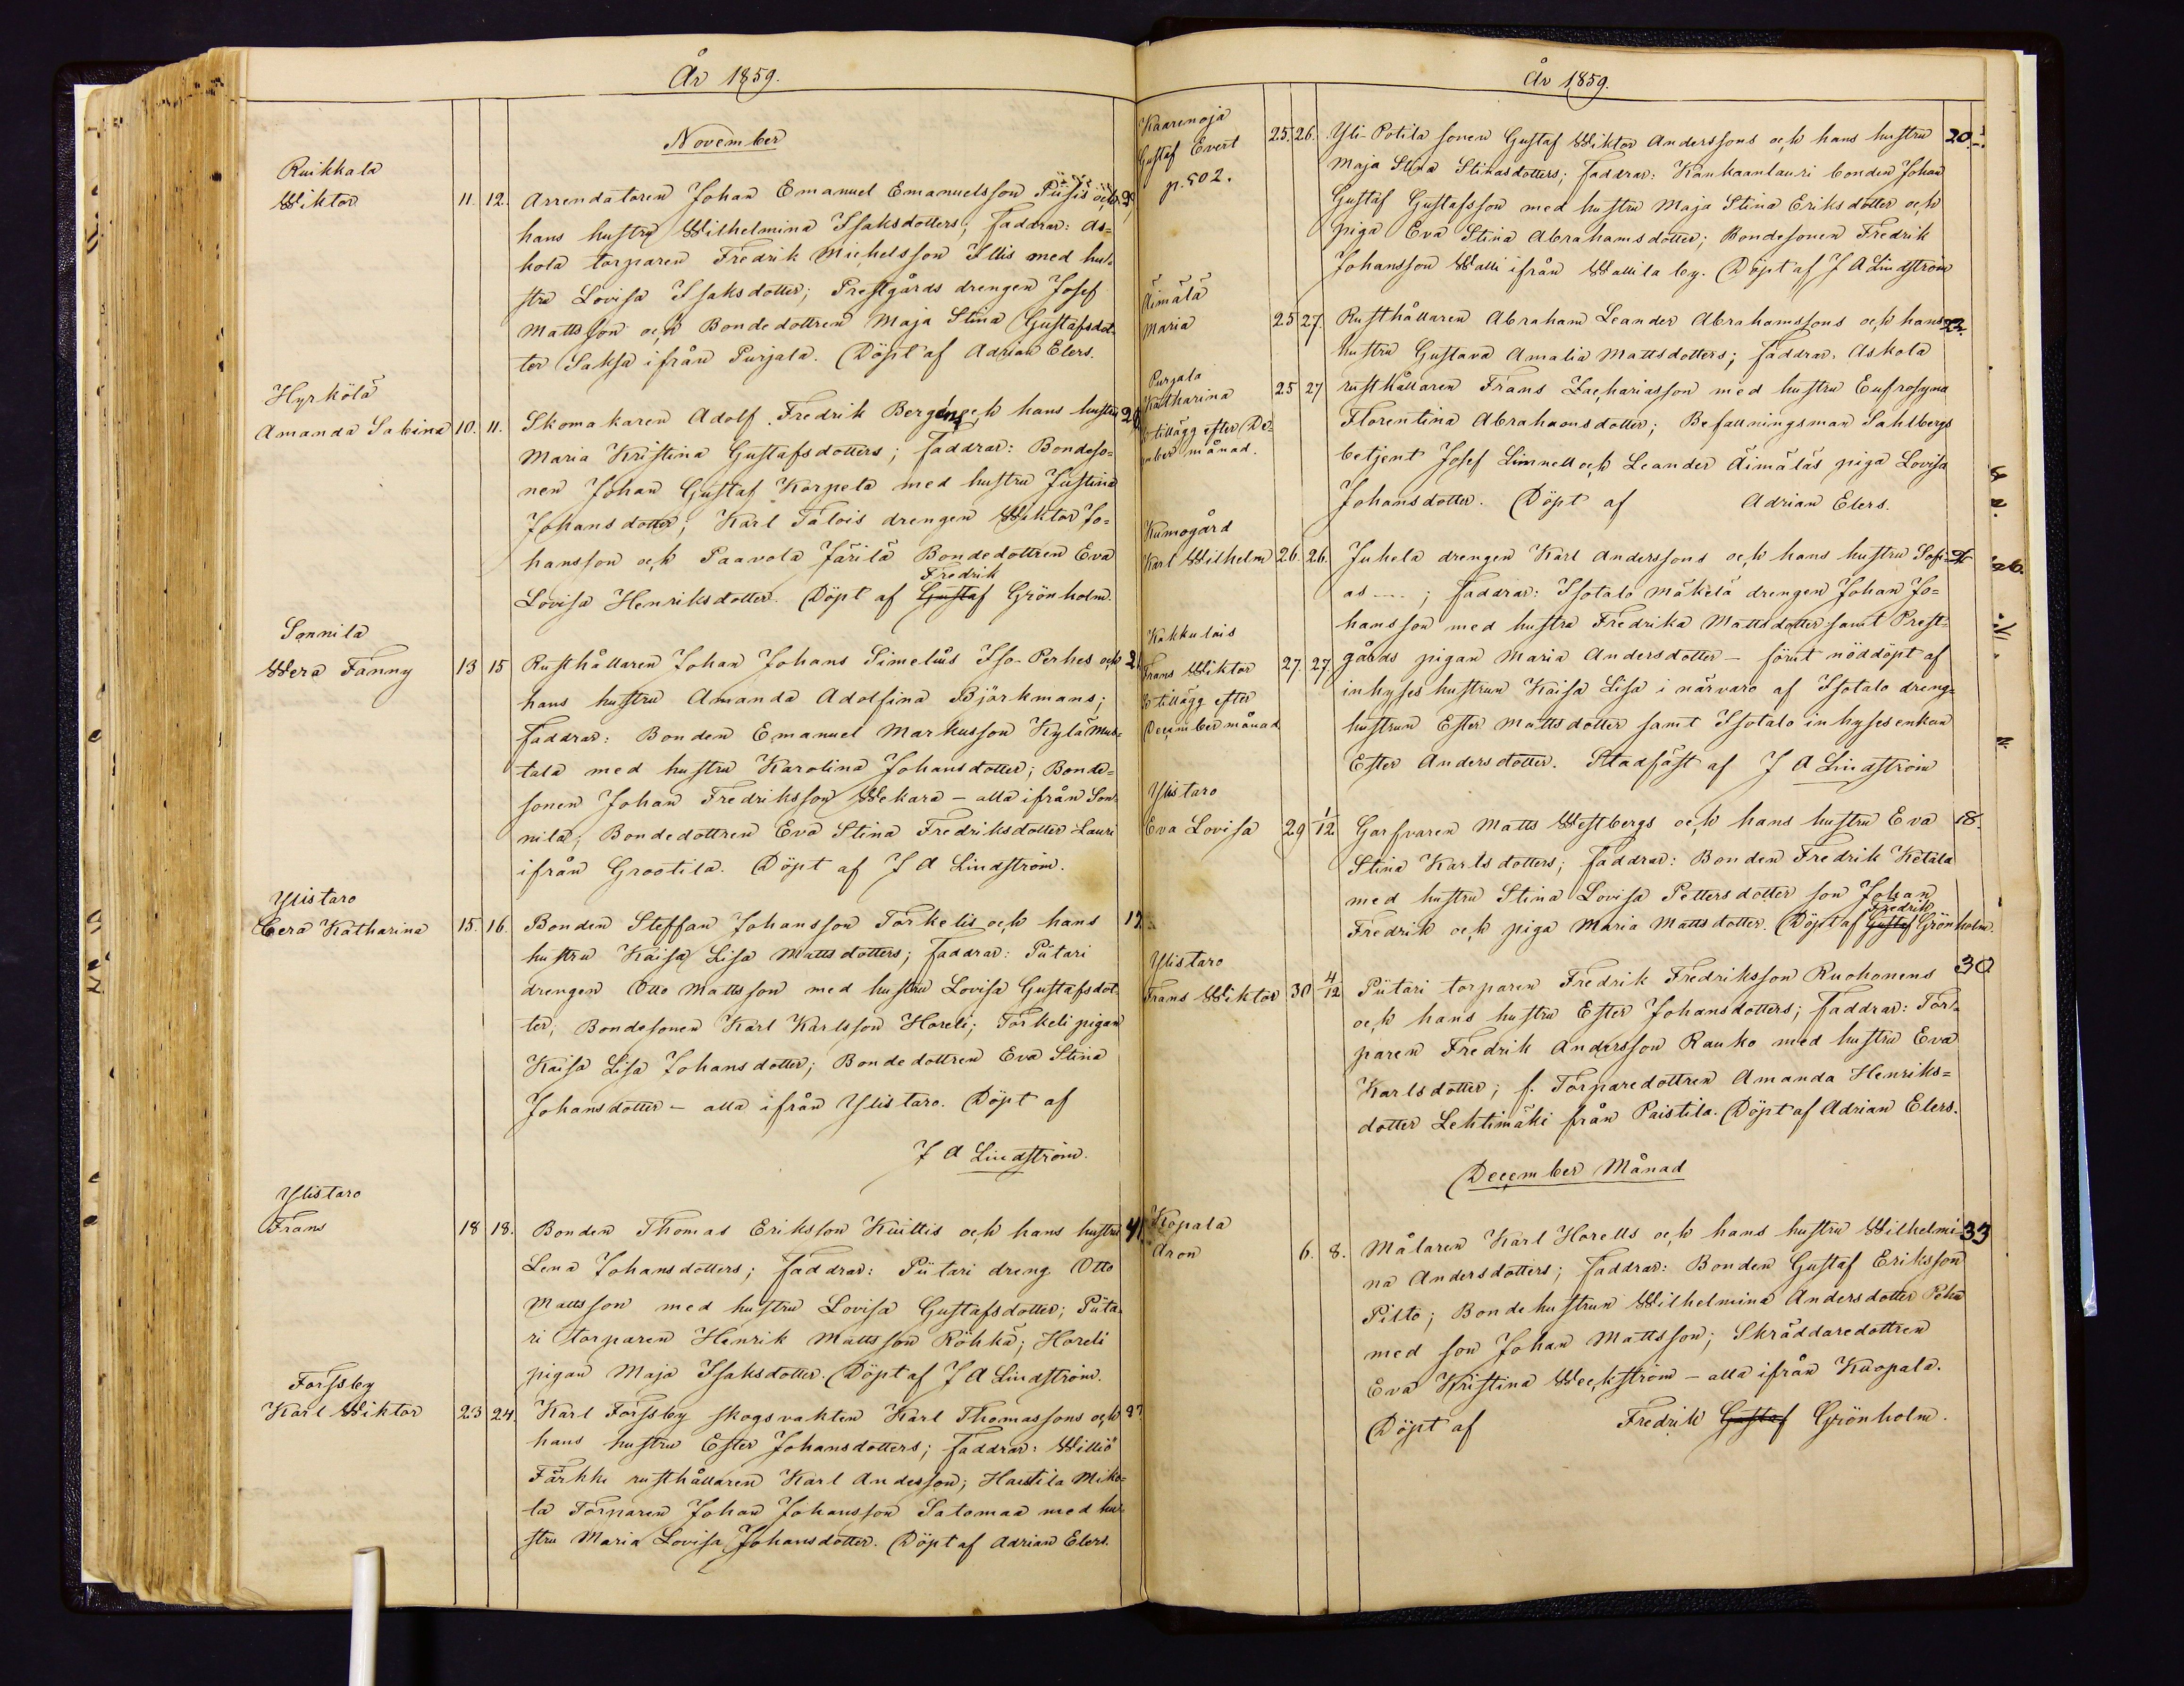 År 1859.
November
Ruikkala
Wiktor 11. 12. Arrendatoren Johan Emanuel Emanuelsson och
hans hustru Wilhelmina Isaksdotters; faddrar: As-
kola torparen Fredrik Michelsson Illis med hu-
stru Lovisa Isaksdotter; Prestgårds drengen Josef
Mattsson och Bondedottren Maja Stina Gustafsdot-
ter Saksa ifrån Purjala. Döpt af Adrian Elers.
Hyrkölä
Amanda Sabina 10. 11. Skomakaren Adolf Fredrik Bergén och hans hustru
Maria Kristina Gustafsdotters; faddrar: Bondeso-
nen Johan Gustaf Korpela med hustru Justina
Johansdotter; Karl Talois drengen Wiktor Jo-
hansson och Paavola Järilä Bondedottren Eva
Fredrik
Lovisa Henriksdotter. Döpt af Gustaf Grönholm.
Sonnila
Wera Fanny 13 15 Rusthållaren Johan Johans Simelius Iso-Perhes och
hans hustru Amanda Adolfina Björkmans;
faddrar: Bonden Emanuel Markusson Kylä Mus-
tala med hustru Karolina Johansdotter; Bonde-
sonen Johan Fredriksson Wekara – alla ifrån Son-
nila; Bondedottren Eva Stina Fredriksdotter Lauri
ifrån Grootila. Döpt af J A Lindström.
Ylistaro
Cera Katharina 15. 16. Bonden Steffan Johansson Torkelis och hans 12
hustru Kaisa Lisa Mattsdotters; faddrar: Piitari
drengen Otto Mattsson med hustru Lovisa Gustafsdot-
ter; Bondesonen Karl Karlsson Horeli; Torkeli pigan
Kaisa Lisa Johansdotter; Bondedottren Eva Stina
Johansdotter – alla ifrån Ylistaro. Döpt af
J A Lindström.
Ylistaro
Frans 18 18. Bonden Thomas Eriksson Kuittis och hans hustru 41
Lena Johansdotters; faddrar: Piitari dreng Otto
Mattsson med hustru Lovisa Gustafsdotter; Piita-
ri torparen Henrik Mattsson Röhkä; Horeli
pigan Maja Isaksdotter. Döpt af J A Lindström.
Forssby
Karl Wiktor 23 24. Karl Forssby skogsvakten Karl Thomassons och
hans hustru Ester Johansdotters; faddrar: Williö
Färkki rusthållaren Karl Andesson; Haistila Miko-
la Torparen Johan Johansson Salomaa med hu-
stru Maria Lovisa Johansdotter. Döpt af Adrian Elers.
År 1859.
Kaarenoja
Gustaf Evert 25. 26. Yli-Potila sonen Gustaf Wiktor Anderssons och hans hustru 20.
p. 502. Maja Stina Stinasdotters; faddrar: Kankaanlauri bonden Johan
Gustaf Gustafsson med hustru Maja Stina Eriksdotter och
piga Eva Stina Abrahamsdotter; Bondesonen Fredrik
Johansson Walli ifrån Wallila by. Döpt af J A Lindström
Äimälä
Maria 25 27. Rusthållaren Abraham Leander Abrahamssons och hans 22.
hustru Gustava Amalia Mattsdotters; faddrar: Askola
Purjala
Katharina 25 27 rusthållaren Frans Zachariasson med hustru Eufrosyna
tillägg efter De-
Florentina Abrahamsdotter; Befallningsman Sahlbergs
månad. betjent Josef Linnell och Leander Äimäläs piga Lovisa
Johansdotter. Döpt af Adrian Elers.
Kumogård
Karl Wilhelm 26. 26. Juhela drengen Karl Anderssons och hans hustru Sofi-
as ---; faddrar: Isotalo Mäkelä drengen Johan Jo-
hansson med hustru Fredrika Mattsdotter samt Prest-
Kakkulais
Frans Wiktor 27. 27. gårds pigan Maria Andersdotter – förut nöddöpt af
tillägg efter
inhyses hustrun Kaisa Lisa i närvaro af Isotalo dreng-
December månad
hustrun Ester Mattsdotter samt Isotalo inhysesenkan
Ester Andersdotter. Stadfäst af J A Lindström
Ylistaro
Eva Lovisa 29 1/12 Garfvaren Matts Westbergs och hans hustru Eva 18.
Stina Karlsdotters; faddrar: Bonden Fredrik Ketala
med hustru Stina Lovisa Pettersdotter son Johan
Fredrik
Fredrik och piga Maria Mattsdotter. Döpt af Gustaf Grönholm.
Ylistaro
Frans Wiktor 30 4/12 Piitari torparen Fredrik Fredriksson Ruohonens 30
och hans hustru Ester Johansdotters; faddrar: Tor-
paren Fredrik Andersson Rauko med hustru Eva
Karlsdotter; f. Torparedottren Amanda Henriks-
dotter Lehtimäki från Paistila. Döpt af Adrian Elers.
December Månad
Kopala
Aron 6. 8. Målaren Karl Horells och hans hustru Wilhelmi- 33
na Andersdotters; faddrar: Bonden Gustaf Eriksson
Pilto; Bondehustrun Wilhelmina Andersdotter
med son Johan Mattsson; Skräddaredottren
Eva Kristina Weckström – alla ifrån Kuopala.
Döpt af Fredrik Gustaf Grönholm.